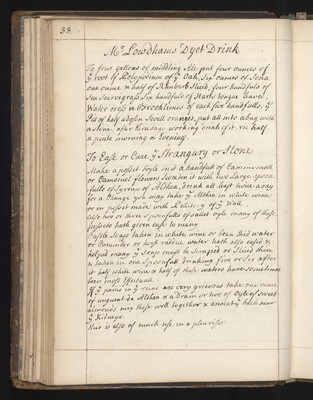 38
Mr Lowdhams Dyet Drink
To four gallons of middling Ale put four ounces of
ye root of Polypodium of ye Oak, Six ounces of Sena
one ounce & half of Rhubarb Slic'd, four handfuls of
Sea Scurvygrass Six handfuls of Harts tongue Sweet
Water cress & Brooklimes of each five handfulls, ye
Pill of half a dozen Sevill oranges, put all into a bag with
a stone, after three days working drink of it viz half
a pinte morning & evening
To Ease or Cure ye Strangury or Stone
Make a posset boyle in it a handfull of Cammomell
or Camomel flowers Sweeten it with two Large spoon
fulls of Syrrup of Althea, drink all last twice a day
for a Change you may take ye Althea in white wine
or in posset made with Pellitory of ye Wall
also two or three spoonfulls of sallet oyle many of these
possets hath given ease to many
Castle Soap taken in white wine or bean Kid water
or Cucumber or hors radice water hath also eased &
helped many ye Soap must be Scraped or Sliced then
& taken in one Spoonfull drinking five or Six after
it half white wine & half of these waters have sometimes
been most Effectuall
If ye pains in ye reins are very grievous take one ounce
of unguent de Althea & a Dram or two of Oyle of sweet
almonds mix these well together & anoint ye back near
ye Kidneys
this is also of much use in a pleurisie